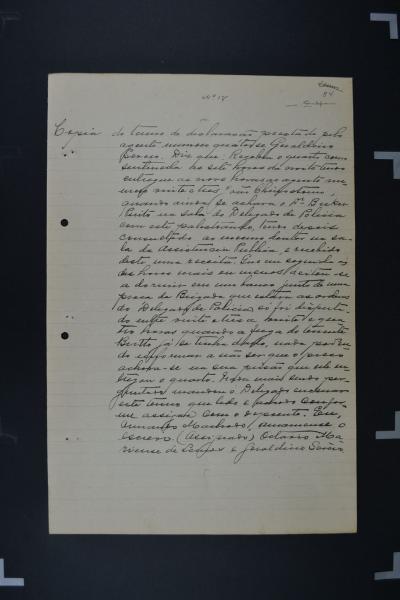 Nº 17
84
Copia do termo de declaração prestada pelo
agente numero quatro Geraldino
Diz que: Recebeu o quarto como
sentinella ás sete horas da noite tendo
entregue ás nove horas ao agente nu-
mero vinte e tres João Chrisostomo,
quando ainda se achava o Dr. Becker
Pinto na sala do Delegado de Policia
com este palestrando, tendo depois
consultado ao mesmo doutor na sa-
la da Assistencia Publica e recebido
deste, uma receita. Que em seguida ás
dez horas mais ou menos deitou-se
a dormir em um banco junto de uma
praça da Brigada que estava ás ordens
do Delegado de Policia e foi desperta-
do entre vinte e tres a vinte e qua-
tro horas quando a fuga do tenente
já se tinha dado, nada poden-
do informar a não ser que o preso
achava-se na sua prisão quando en-
tregou o quarto. Nada mais sendo per-
guntado mandou o Delegado encerrar
este termo que lido e achado confor-
me assigna com o depoente. Eu,
Armando Machado, amanuense o
escrevi. (Assignado) Octavio Ma-
riense de Lemos e Geraldino